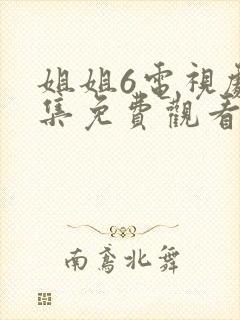 姐姐6電視劇
集免費觀看
南鳶北舞